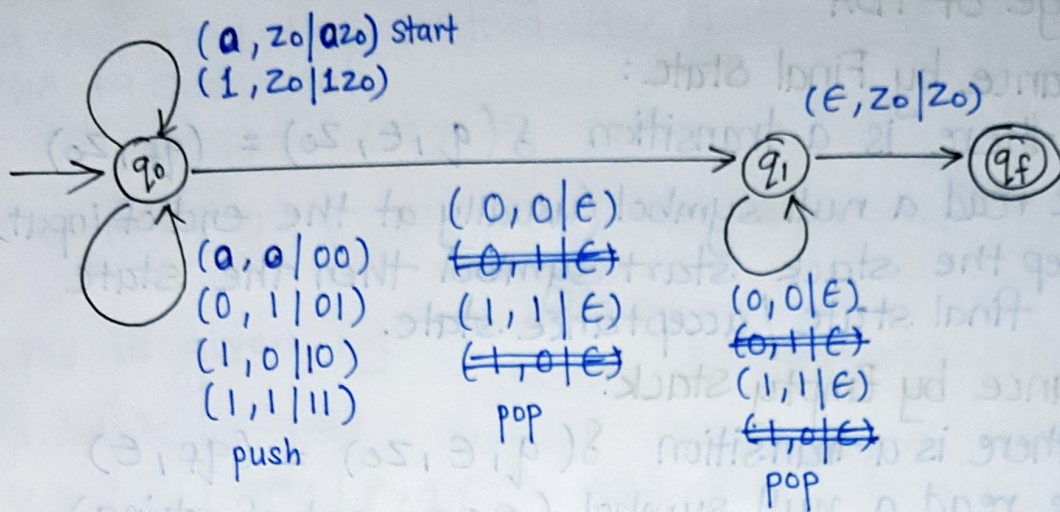 (a, z0|az0) start
(1, z0|1z0)
(ε, z0|z0)
q0
q1
qf
(a, 0|00)
(0, 1|01)
(1, 0|10)
(1, 1|11)
push
(0, 0|ε)
(0, 1|ε)
(1, 1|ε)
(1, 0|ε)
pop
(0, 0|ε)
(0, 1|ε)
(1, 1|ε)
(1, 0|ε)
pop